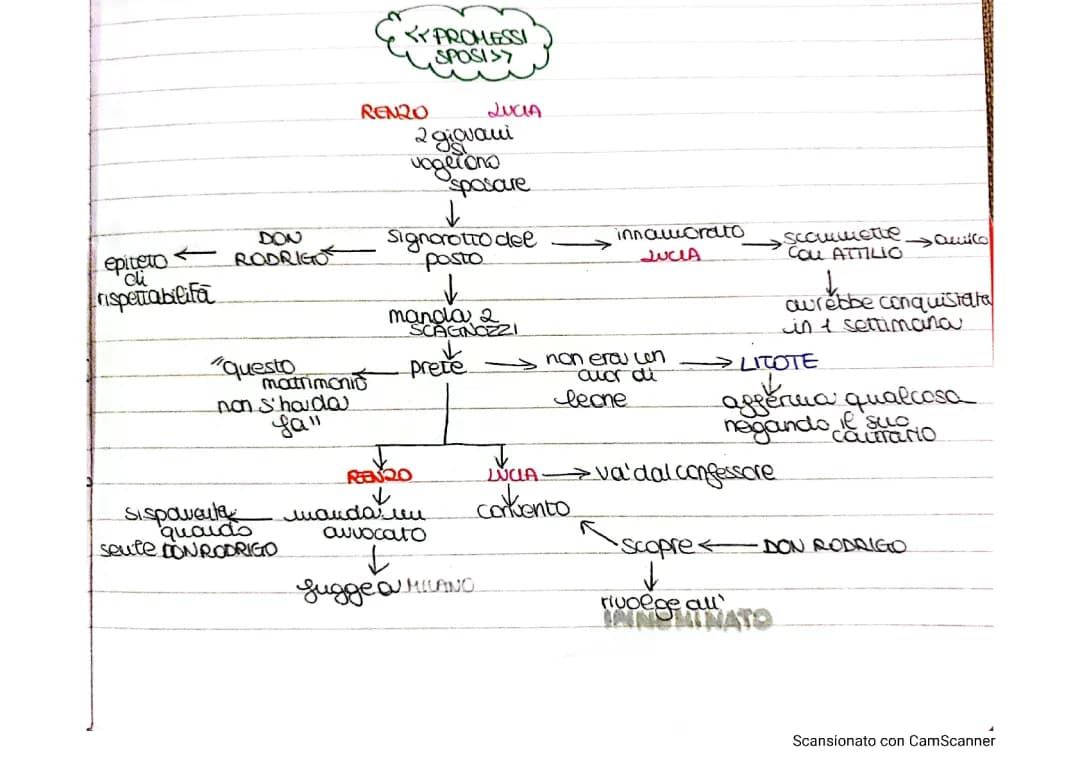 <<PROMESSI
SPOSI>>
RENZO LUCIA
2 giovani
si
vogliono
sposare
DON
RODRIGO
epiteto
di
rispettabilità
signorotto del
posto
innamorato
LUCIA
scommette
con ATTILIO
amico
avrebbe conquistata
in 1 settimana
manda 2
SCAGNOZZI
prete
"questo
matrimonio
non s'ha da
fa"
non era un
cuor di
leone
LITOTE
afferma qualcosa
negando il suo
contrario
RENZO
LUCIA
va' dal confessore
si spaventa
quando
sente DON RODRIGO
manda un
avvocato
convento
scopre
DON RODRIGO
fugge a MILANO
rivolege all'
INNOMINATO
Scansionato con CamScanner